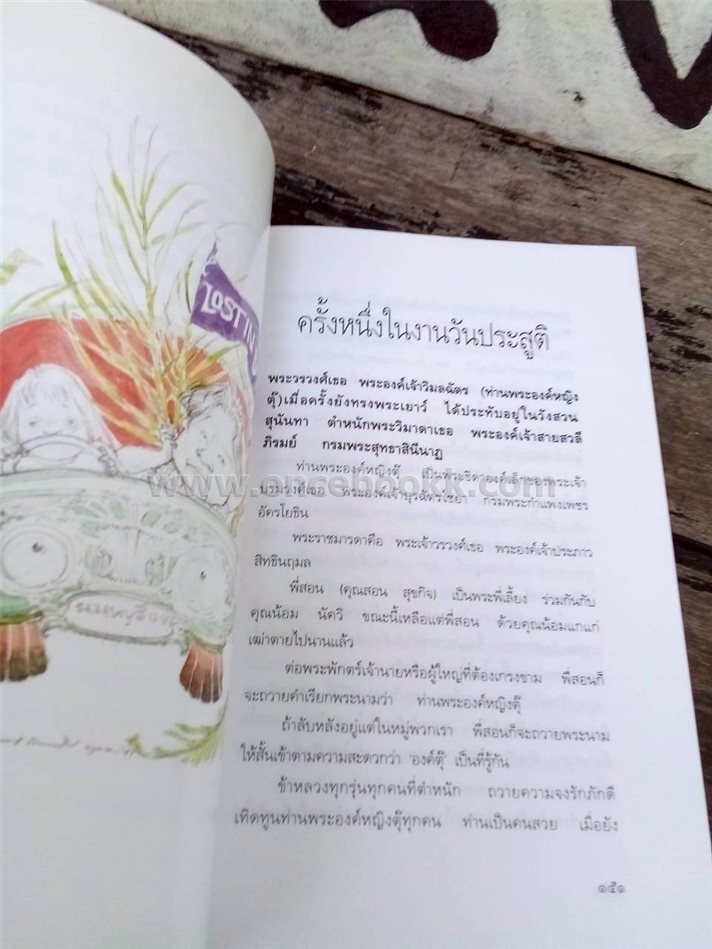 LOST IN
ครั้งหนึ่งในงานวันประสูติ
พระวรวงศ์เธอ พระองค์เจ้าวิมลฉัตร (ท่านพระองค์หญิง
ตุ๊)เมื่อครั้งยังทรงพระเยาว์ ได้ประทับอยู่ในวังสวน
สุนันทา ตำหนักพระวิมาดาเธอ พระองค์เจ้าสายสวลี
ภิรมย์ กรมพระสุทธาสินีนาฏ
ท่านพระองค์หญิงตุ๊ เป็นพระธิดาองค์เล็กของพระเจ้า
www.oncebookk.com
บรมวงศ์เธอ พระองค์เจ้าบุรฉัตรไชยา กรมพระกำแพงเพชร
อัครโยธิน
พระราชมารดาคือ พระเจ้าวรวงศ์เธอ พระองค์เจ้าประภาว
สิทธินฤมล
พี่สอน (คุณสอน สุขกิจ) เป็นพระพี่เลี้ยง ร่วมกันกับ
คุณน้อม นัควิ ขณะนี้เหลือแต่พี่สอน ด้วยคุณน้อมแกแก่
เฒ่าตายไปนานแล้ว
ต่อพระพักตร์เจ้านายหรือผู้ใหญ่ที่ต้องเกรงขาม พี่สอนก็
จะถวายคำเรียกพระนามว่า ท่านพระองค์หญิงตุ๊
ถ้าลับหลังอยู่แต่ในหมู่พวกเรา พี่สอนก็จะถวายพระนาม
ให้สั้นเข้าตามความสะดวกว่า 'องค์ตุ๊' เป็นที่รู้กัน
ข้าหลวงทุกรุ่นทุกคนที่ตำหนัก ถวายความจงรักภักดี
เทิดทูนท่านพระองค์หญิงตุ๊ทุกคน ท่านเป็นคนสวย เมื่อยัง
๑๕๑